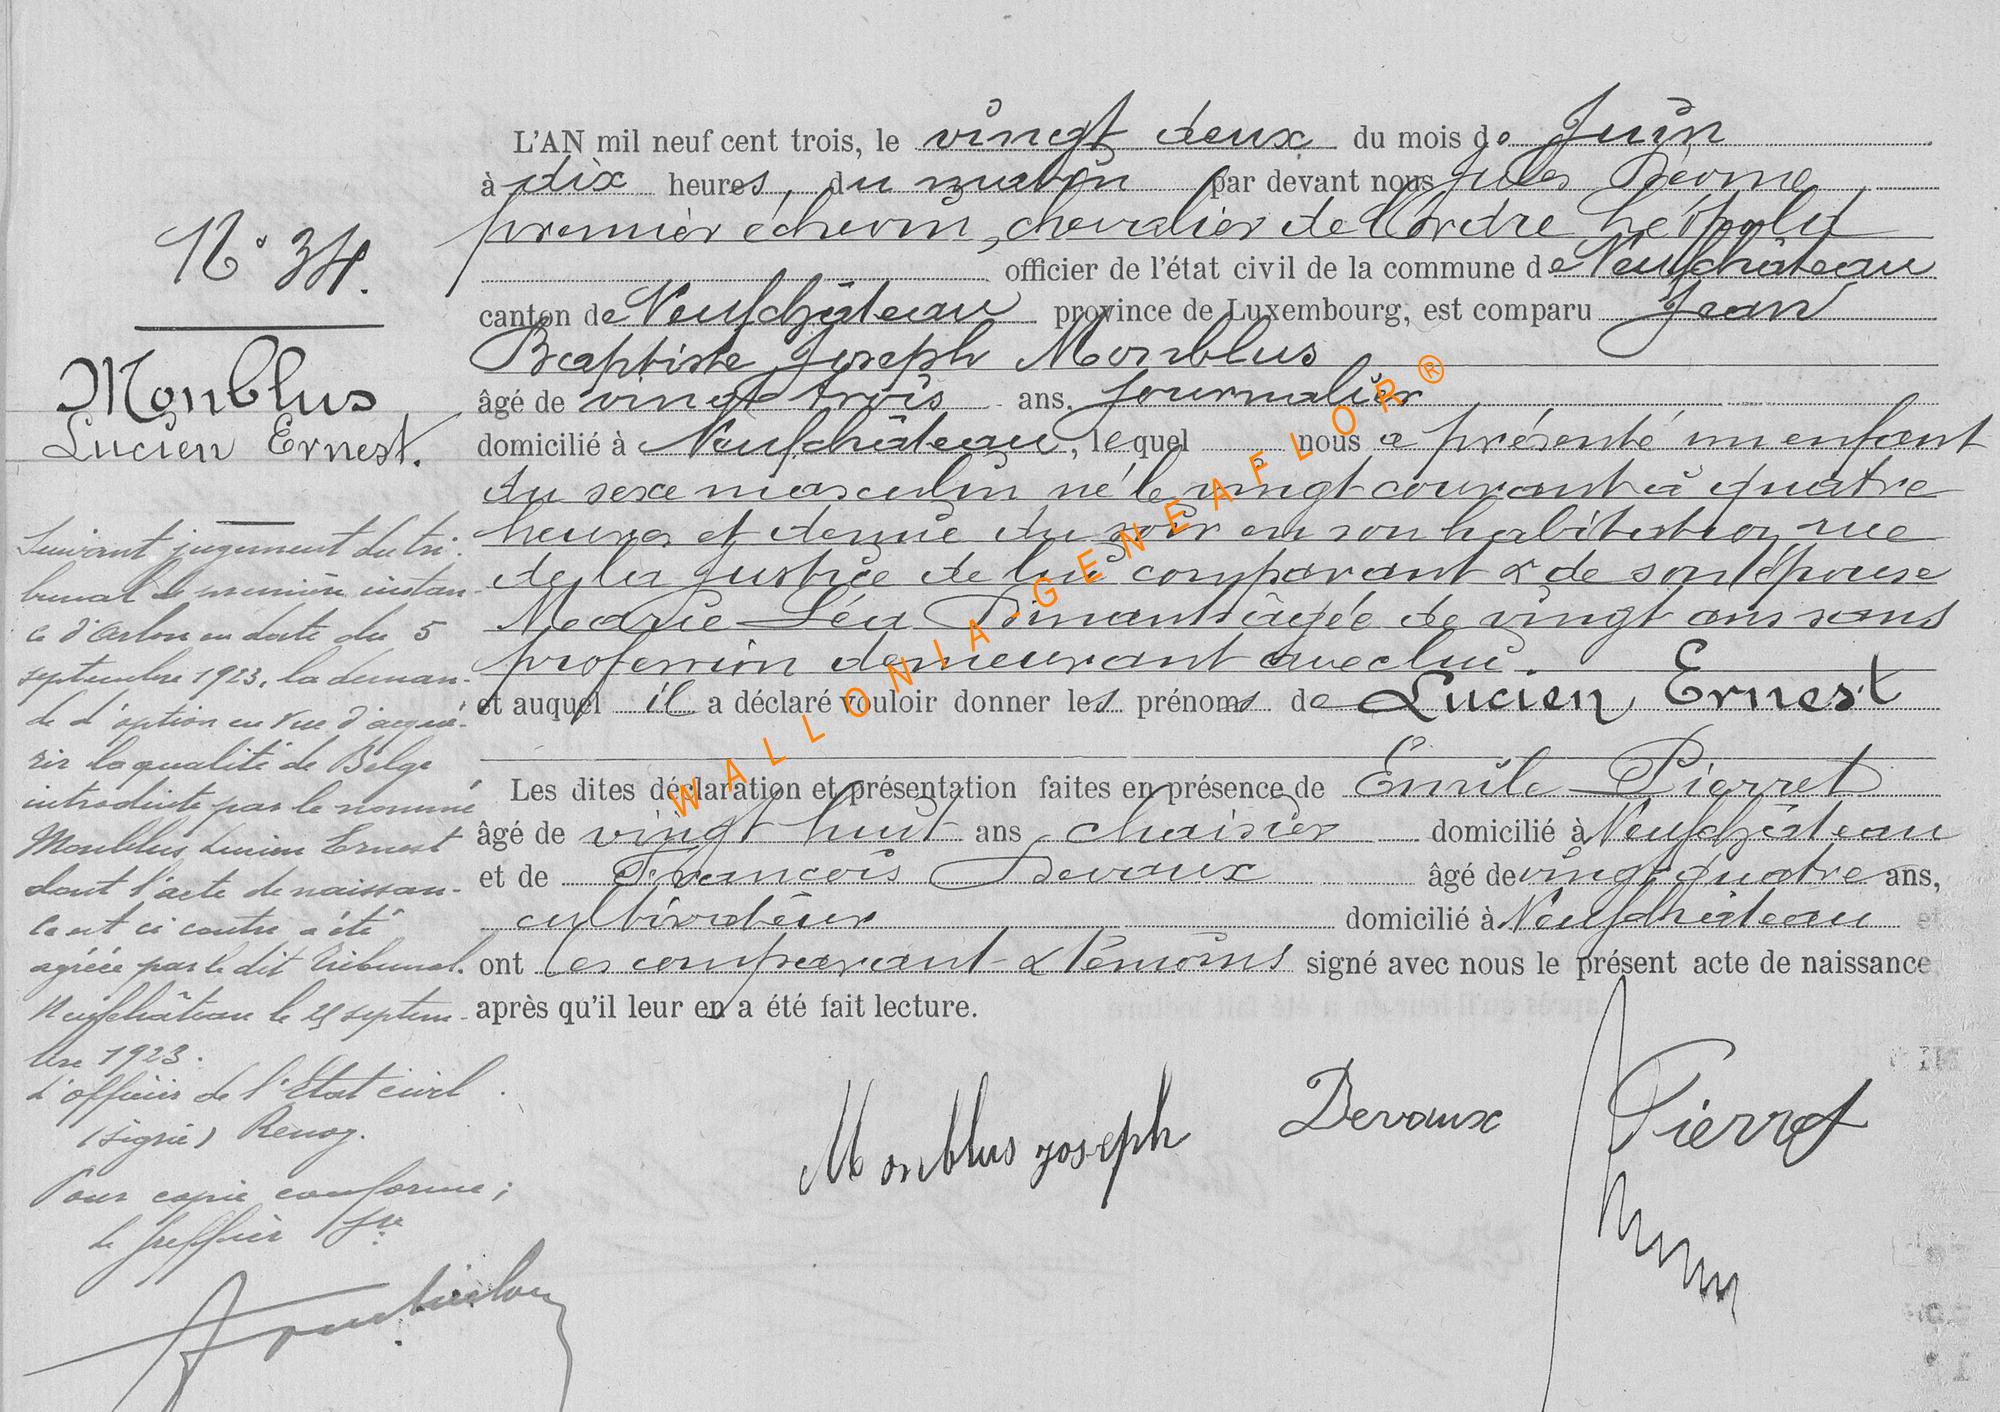 N° 34.
Monblus
Lucien Ernest.
Suivant jugement du tri-
bunal de première instan-
ce d'Arlon en date du 5
septembre 1923, la deman-
de d'option en vue d'acqué-
rir la qualité de Belge
introduite par le nommé
Monblus Lucien Ernest
dont l'acte de naissan-
ce est ci contre a été
agréée par le dit Tribunal.
Neufchâteau le septem-
bre 1923.
L'officier de l'Etat civil
(signé)
Pour copie conforme;
Le Greffier
L'AN mil neuf cent trois, le vingt deux du mois de Juin
à dix heures, du matin par devant nous Jules
premier échevin, chevalier de l'Ordre Léopold
officier de l'état civil de la commune de Neufchâteau
canton de Neufchâteau province de Luxembourg, est comparu Jean
Baptiste Joseph Monblus
âgé de vingt trois ans, journalier
domicilié à Neufchâteau, lequel nous a présenté un enfant
du sexe masculin né le vingt courant à quatre
heures et demie du soir en son habitation rue
de la Justice de lui comparant & de son épouse
Marie Léa Dinant âgée de vingt ans sans
profession demeurant avec lui.
et auquel il a déclaré vouloir donner les prénoms de Lucien Ernest
Les dites déclaration et présentation faites en présence de Emile Pierret
âgé de vingt huit ans, chaisier domicilié à Neufchâteau
et de François Devaux âgé de vingt quatre ans,
cultivateur domicilié à Neufchâteau
ont les comparant & témoins signé avec nous le présent acte de naissance
après qu'il leur en a été fait lecture.
Monblus Joseph Devaux Pierret
WALLONIA-GENEAFLOR®